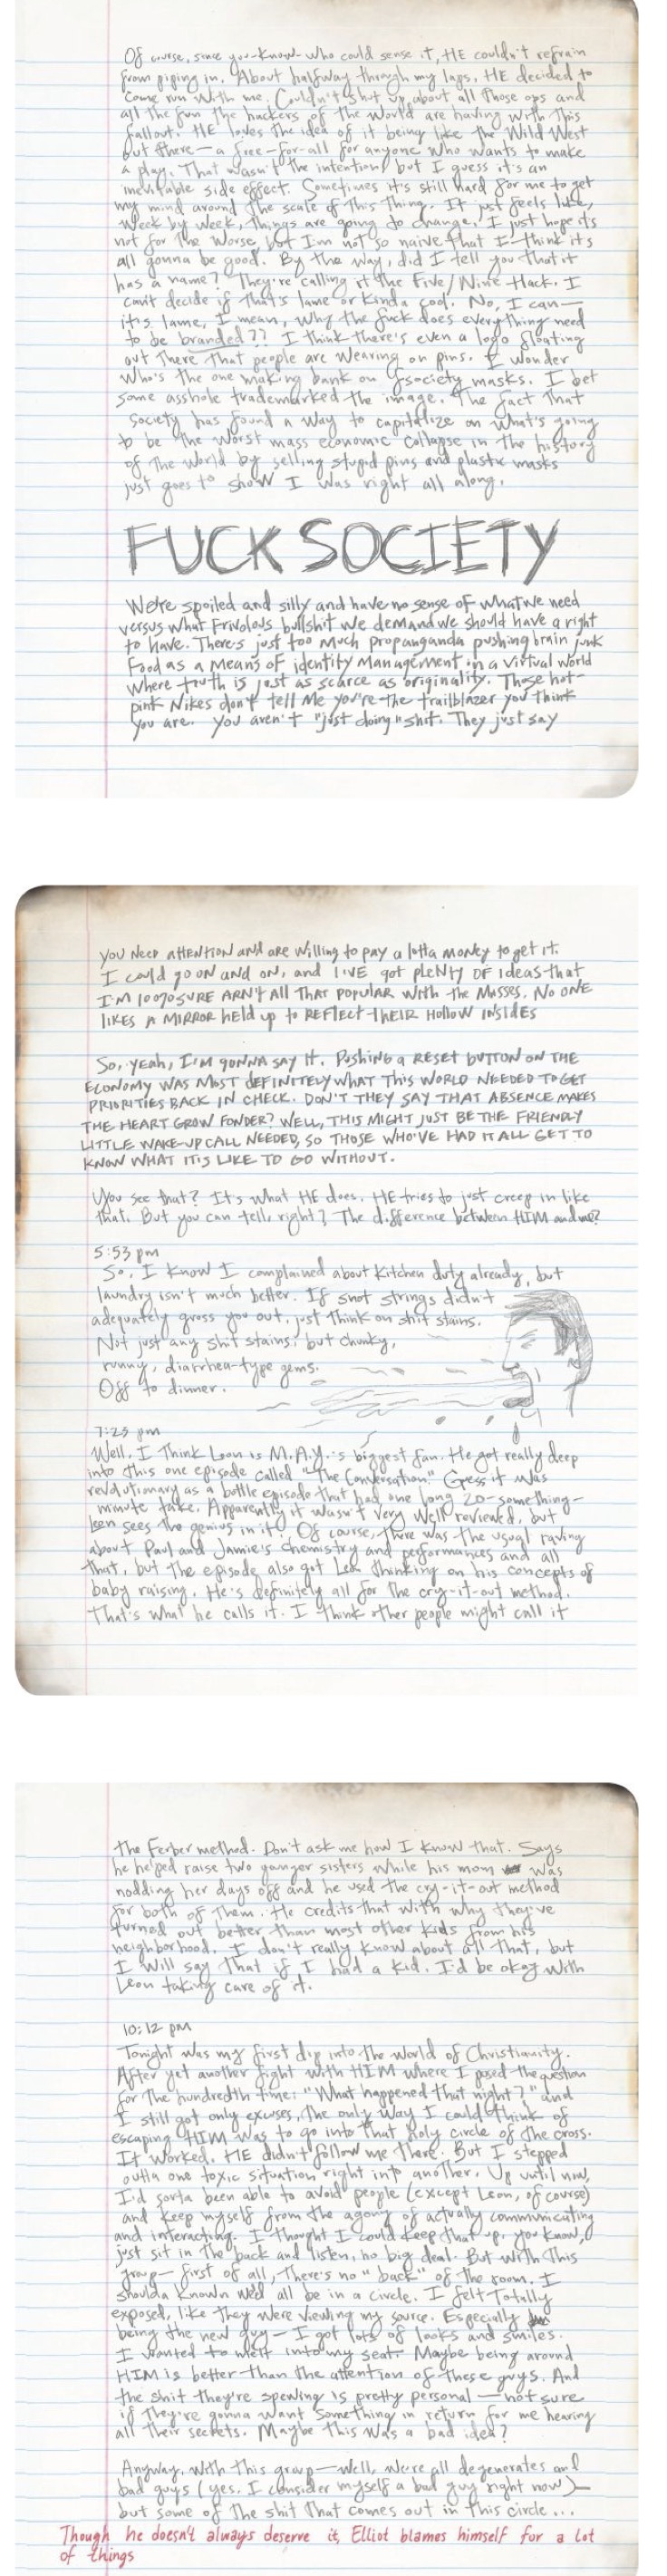 Of course, since you-know-who could sense it, HE couldn't refrain
from piping in. About halfway through my laps, HE decided to
come run with me. Couldn't shut up about all those ops and
all the fun the hackers of the world are having with this
fallout. HE loves the idea of it being like the Wild West
out there—a free-for-all for anyone who wants to make
a play. That wasn't the intention, but I guess it's an
inevitable side effect. Sometimes it's still hard for me to get
my mind around the scale of this thing. It just feels like,
week by week, things are going to change. I just hope it's
not for the worse, but I'm not so naive that I think it's
all gonna be good. By the way, did I tell you that it
has a name? They're calling it the Five/Nine Hack. I
can't decide if that's lame or kinda cool. No, I can—
it's lame, I mean, why the fuck does everything need
to be branded?? I think there's even a logo floating
out there that people are wearing on pins. I wonder
who's the one making bank on fsociety masks. I bet
some asshole trademarked the image. The fact that
society has found a way to capitalize on what's going
to be the worst mass economic collapse in the history
of the world by selling stupid pins and plastic masks
just goes to show I was right all along.
FUCK SOCIETY
We're spoiled and silly and have no sense of what we need
versus what frivolous bullshit we demand we should have a right
to have. There's just too much propaganda pushing brain junk
food as a means of identity management in a virtual world
where truth is just as scarce as originality. Those hot-
pink Nikes don't tell me you're the trailblazer you think
you are. You aren't "just doing" shit. They just say
you need attention and are willing to pay a lotta money to get it.
I could go on and on, and I'VE got plenty of ideas that
I'M 100% SURE ARN'T ALL THAT POPULAR WITH the MASSES. NO ONE
LIKES A MIRROR held up to REFLECT THEIR HOLLOW INSIDES
SO, YEAH, I'M GONNA SAY IT. PUSHING A RESET BUTTON ON THE
ECONOMY WAS MOST DEFINITELY WHAT THIS WORLD NEEDED TO GET
PRIORITIES BACK IN CHECK. DON'T THEY SAY THAT ABSENCE MAKES
THE HEART GROW FONDER? WELL, THIS MIGHT JUST BE THE FRIENDLY
LITTLE WAKE-UP CALL NEEDED, SO THOSE WHO'VE HAD IT ALL GET TO
KNOW WHAT IT'S LIKE TO GO WITHOUT.
You see that? It's what HE does. HE tries to just creep in like
that. But you can tell, right? The difference between HIM and me?
5:53 pm
So, I know I complained about kitchen duty already, but
laundry isn't much better. If snot strings didn't
adequately gross you out, just think on shit stains.
Not just any shit stains, but chunky,
runny, diarrhea-type gems.
Off to dinner.
7:23 pm
Well, I think Leon is M.A.Y.'s biggest fan. He got really deep
into this one episode called "The Conversation." Guess it was
revolutionary as a bottle episode that had one long 20-something-
minute take. Apparently it wasn't very well reviewed, but
Leon sees the genius in it. Of course, there was the usual raving
about Paul and Jamie's chemistry and performances and all
that, but the episode also got Leon thinking on his concepts of
baby raising. He's definitely all for the cry-it-out method.
That's what he calls it. I think other people might call it
the Ferber method. Don't ask me how I know that. Says
he helped raise two younger sisters while his mom was
nodding her days off and he used the cry-it-out method
for both of them. He credits that with why they've
turned out better than most other kids from his
neighborhood. I don't really know about all that, but
I will say that if I had a kid, I'd be okay with
Leon taking care of it.
10:12 pm
Tonight was my first dip into the world of Christianity.
After yet another fight with HIM where I posed the question
for the hundredth time: "What happened that night?" and
I still got only excuses, the only way I could think of
escaping HIM was to go into that holy circle of the cross.
It worked. HE didn't follow me there. But I stepped
outta one toxic situation right into another. Up until now,
I'd sorta been able to avoid people (except Leon, of course)
and keep myself from the agony of actually communicating
and interacting. I thought I could keep that up, you know,
just sit in the back and listen, no big deal. But with this
group—first of all, there's no "back" of the room. I
shoulda known we'd all be in a circle. I felt totally
exposed, like they were viewing my source. Especially
being the new guy—I got lots of looks and smiles.
I wanted to melt into my seat. Maybe being around
HIM is better than the attention of these guys. And
the shit they're spewing is pretty personal—not sure
if they're gonna want something in return for me hearing
all their secrets. Maybe this was a bad idea?
Anyway, with this group—well, we're all degenerates and
bad guys (yes, I consider myself a bad guy right now)—
but some of the shit that comes out in this circle...
Though he doesn't always deserve it, Elliot blames himself for a lot
of things